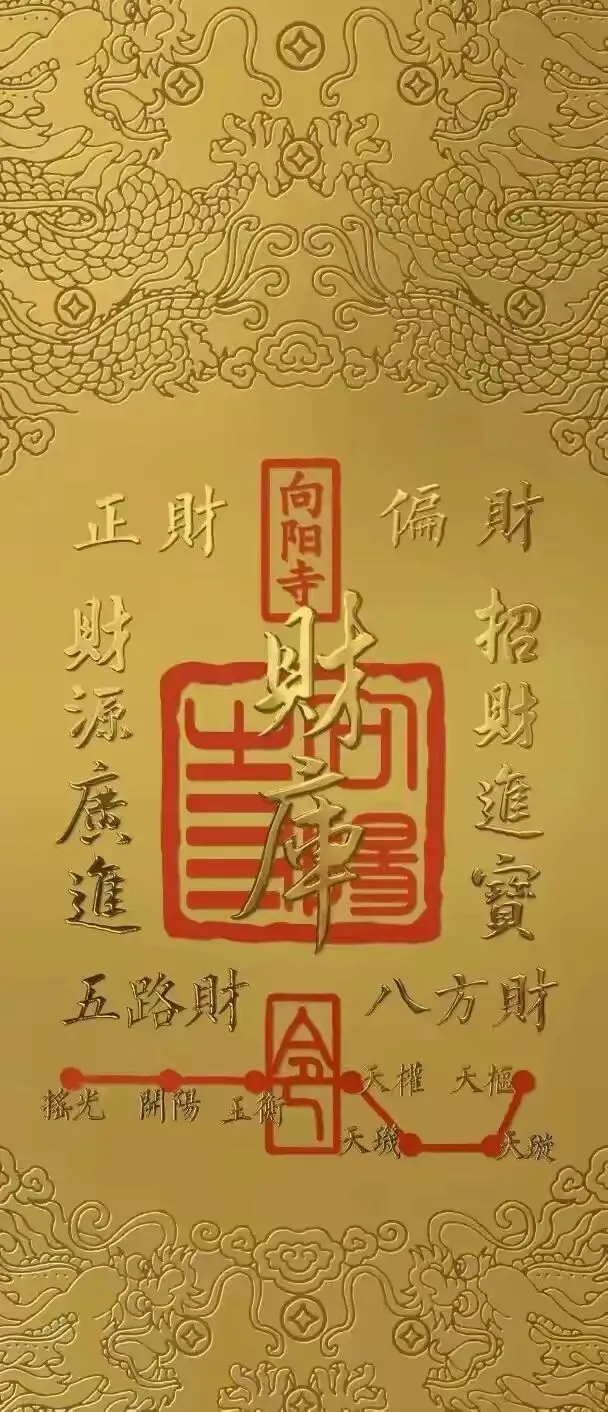 正財
偏財
向阳寺
財源廣進
財庫
招財進寶
五路財
八方財
令
搖光
開陽
玉衡
天權
天樞
天璣
天璇